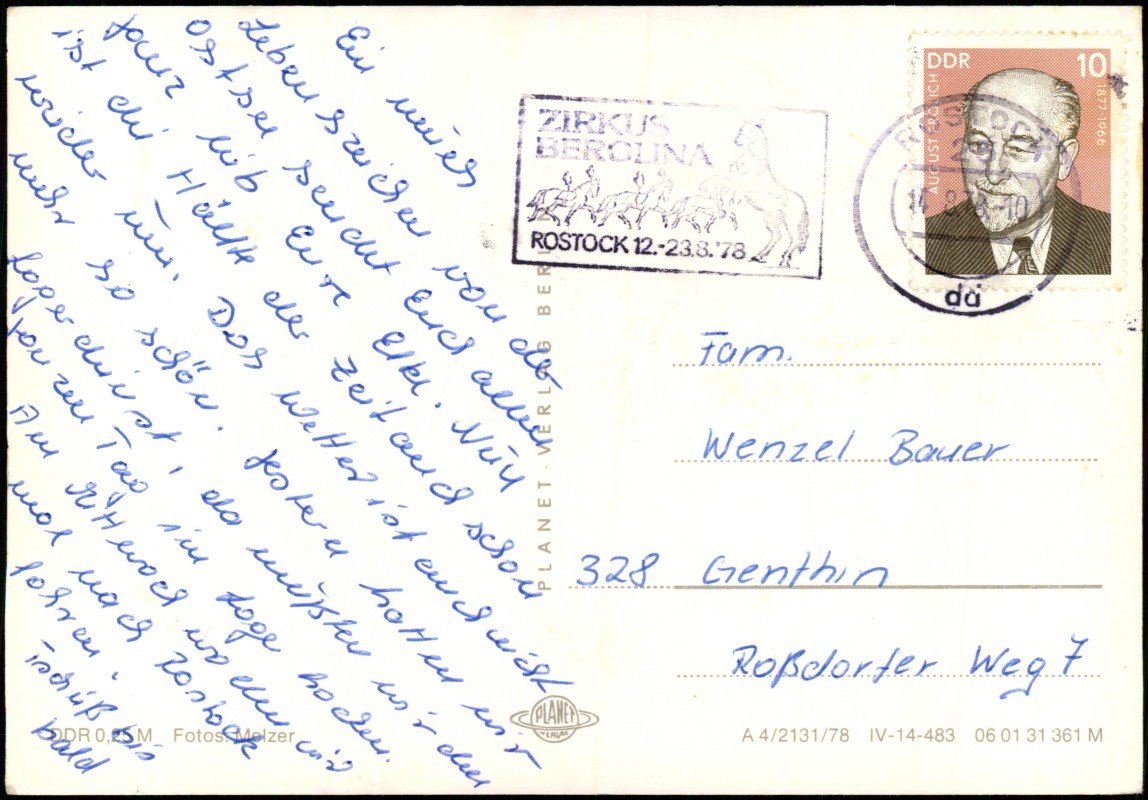 Ein neues
Lebenszeichen von der
Ostsee sendet Euch allen
ganz lieb Eure Elke. Nun
ist die Hälfte der Zeit auch schon
wieder rum. Das Wetter ist auch nicht
mehr so schön. Gestern hatten wir
Lagerdienst, da mußten wir den
ganzen Tag im Lager hocken.
Am Mittwoch wollen wir
mal nach Rostock
fahren.
Tschüß bis
bald
ZIRKUS
BEROLINA
ROSTOCK 12.-23.8.'78
DDR 10
AUGUST FRÖLICH
1877-1966
ROSTOCK
14.8.78-10
da
PLANET-VERLAG BERLIN
Fam.
Wenzel Bauer
328 Genthin
Roßdorfer Weg 7
PLANET
VERLAG
DDR 0,25 M Fotos: Melzer
A 4/2131/78 IV-14-483 06 01 31 361 M